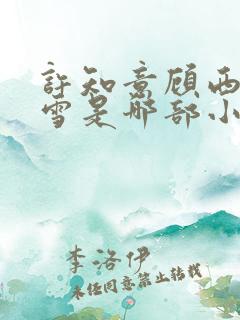 許知意顾西
雪是那部小
李洛伊
未经同意禁止转载